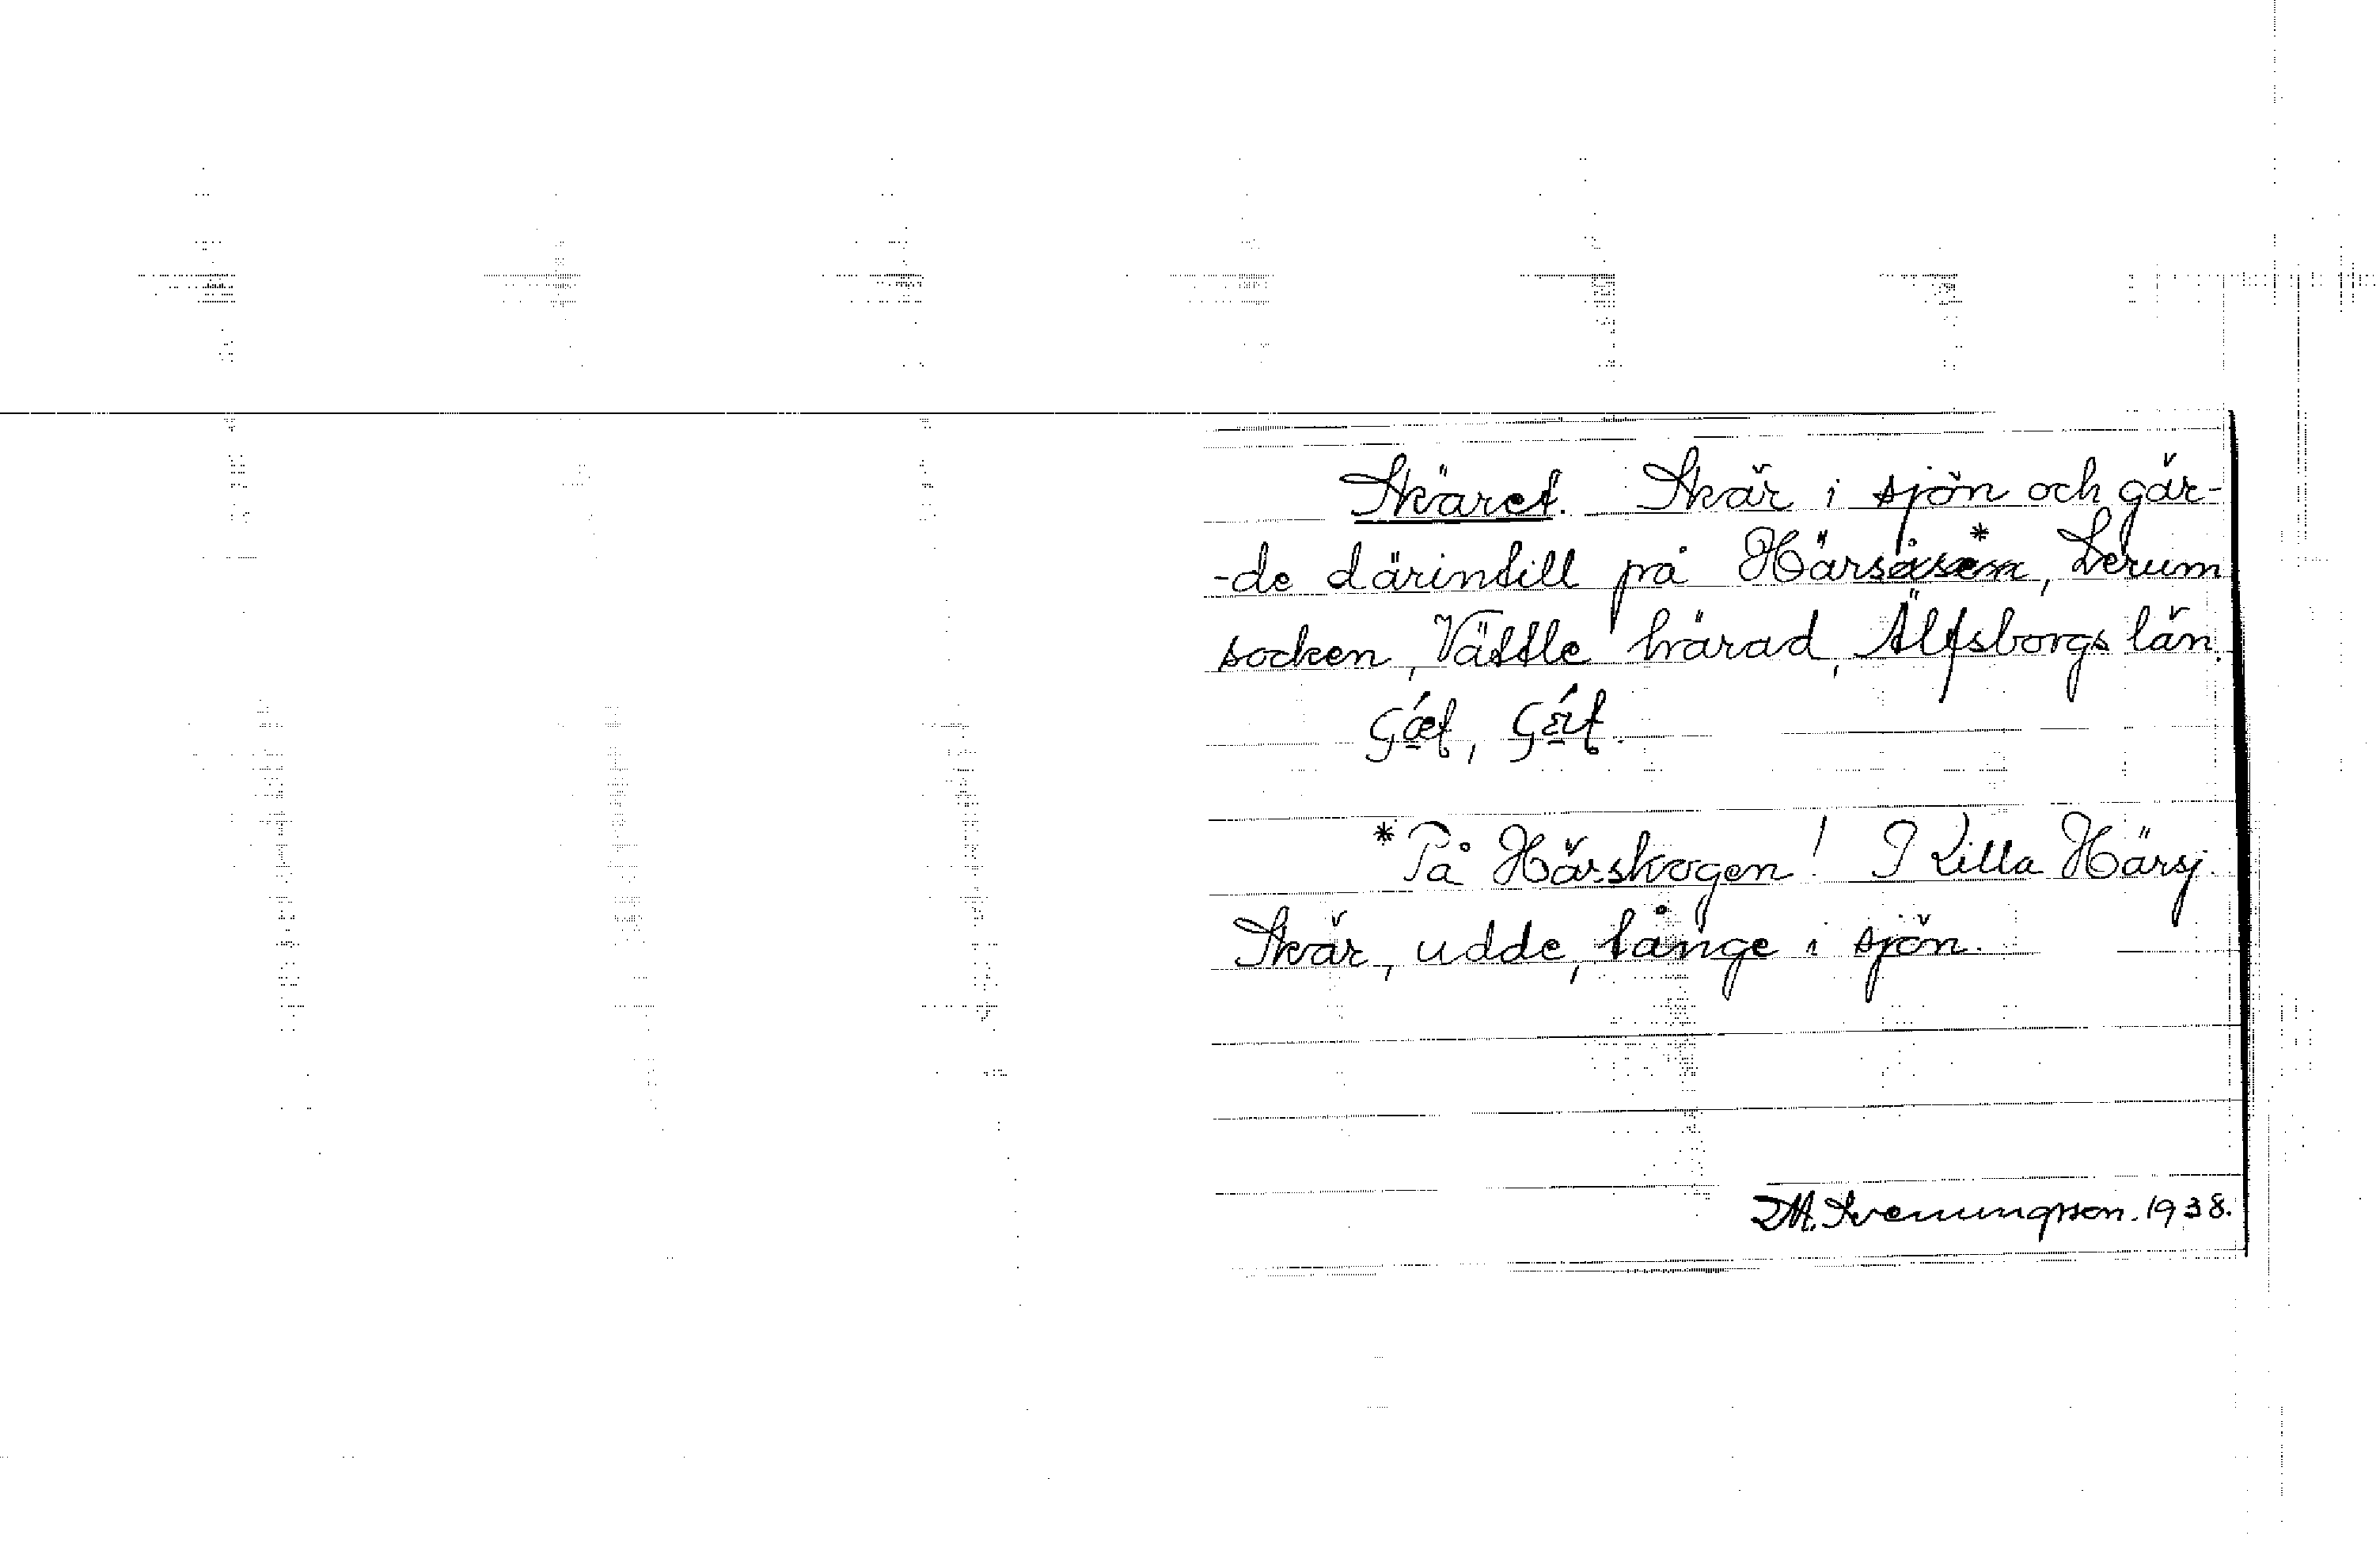 Skäret. Skär i sjön och gär-
-de därintill på Härsåsen*, Lerum
socken, Vättle härad, Älfsborgs län.
*På Härskogen! I Lilla Härsj.
Skär, udde, långe i sjön.
M. Svenungsson. 1938.